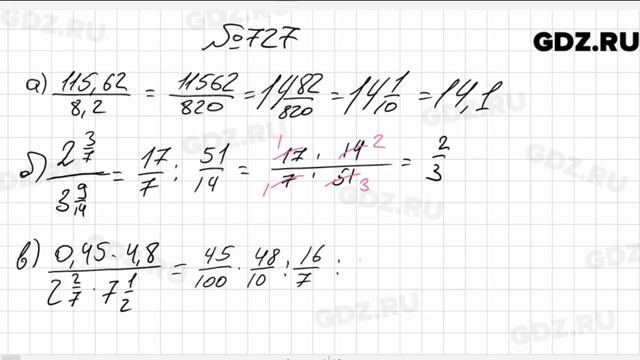 №727
GDZ.RU
а) 115,62 / 8,2 = 11562 / 820 = 14 82/820 = 14 1/10 = 14,1
б) 2 3/7 / 3 9/14 = 17/7 : 51/14 = 17 · 14 / 7 · 51 = 2/3
1 2 1 3
в) 0,45 · 4,8 / 2 2/7 · 7 1/2 = 45/100 · 48/10 : 16/7 :